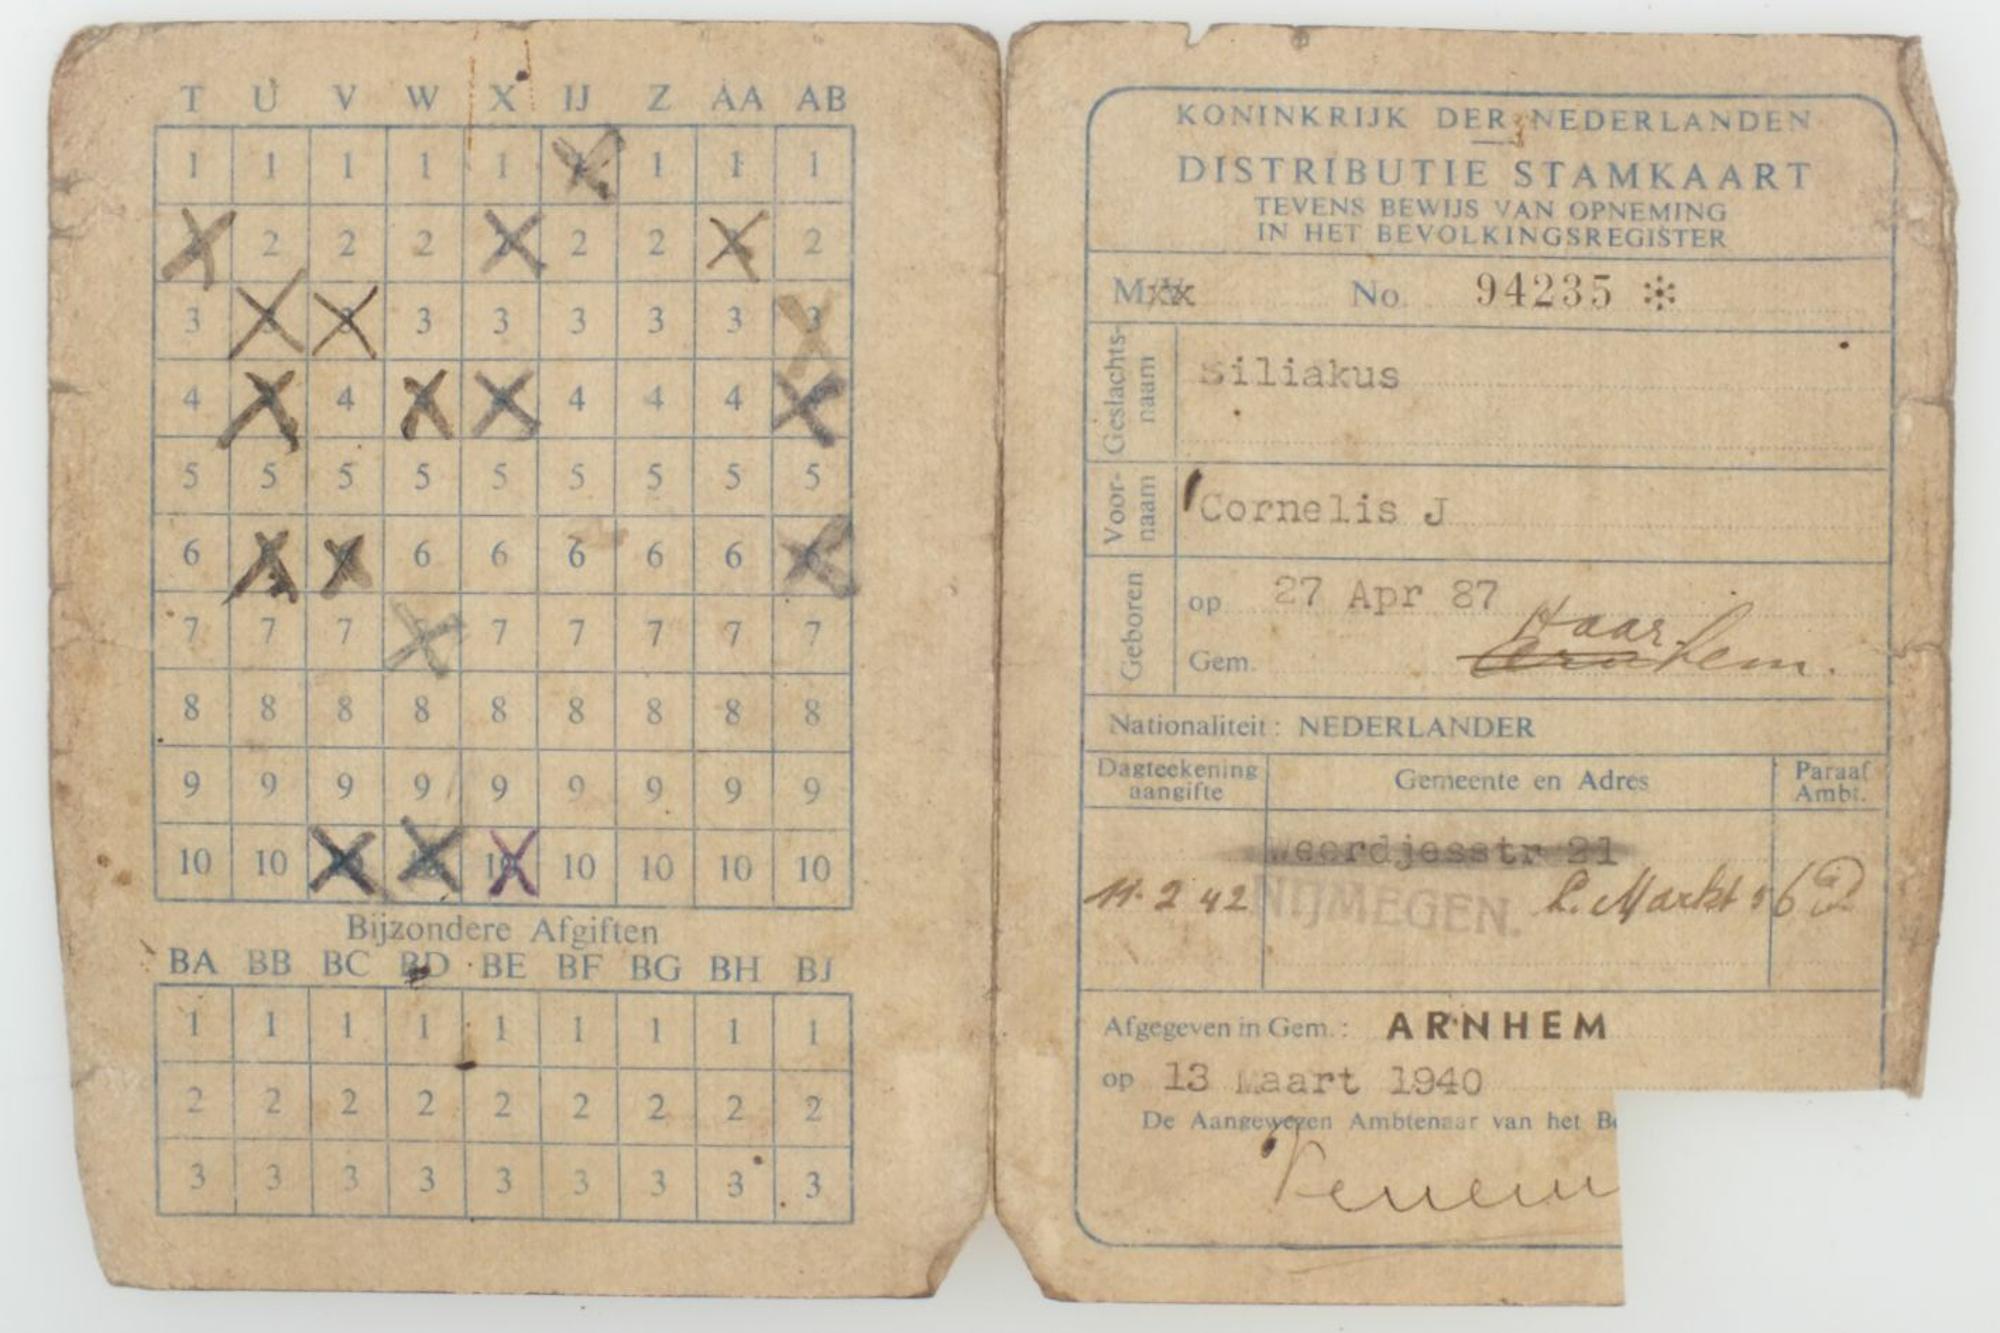 T U V W X IJ Z AA AB
1 1 1 1 1 1 1 1 1
2 2 2 2 2 2 2 2
3 3 3 3 3 3 3 3 3
4 4 4 4 4
5 5 5 5 5 5 5 5 5
6 6 6 6 6 6
7 7 7 7 7 7 7 7
8 8 8 8 8 8 8 8 8
9 9 9 9 9 9 9 9 9
10 10 10 10 10 10 10
Bijzondere Afgiften
BA BB BC BD BE BF BG BH BJ
1 1 1 1 1 1 1 1 1
2 2 2 2 2 2 2 2 2
3 3 3 3 3 3 3 3 3
KONINKRIJK DER NEDERLANDEN
DISTRIBUTIE STAMKAART
TEVENS BEWIJS VAN OPNEMING
IN HET BEVOLKINGSREGISTER
M No 94235
Geslachts-
naam
Siliakus
Voor-
naam
Cornelis J
Geboren
op 27 Apr 87
Gem. Haarlem.
Nationaliteit: NEDERLANDER
Dagteekening
aangifte
Gemeente en Adres
Paraaf
Ambt.
Weerdjesstr 21
11-2 42 NIJMEGEN. Markt
Afgegeven in Gem.: ARNHEM
op 13 Maart 1940
De Aangewezen Ambtenaar van het Be